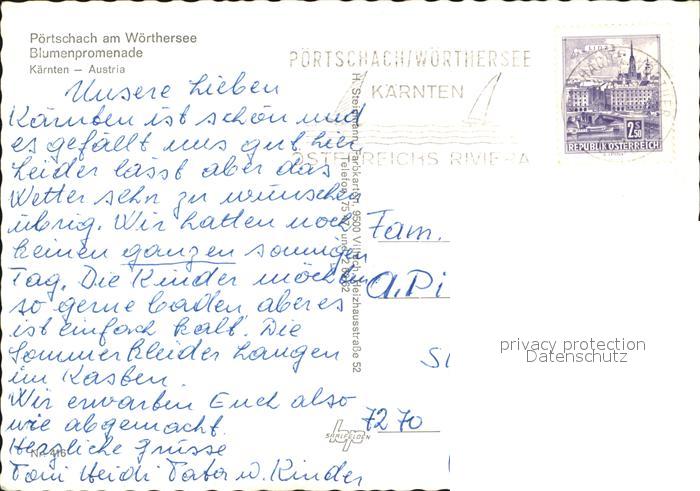 Pörtschach am Wörthersee
Blumenpromenade
Kärnten – Austria
Unsere Lieben
Kärnten ist schön und
es gefällt uns gut hier
Leider lässt aber das
Wetter sehr zu wünschen
übrig. Wir hatten noch
keinen ganzen sonnigen
Tag. Die Kinder möchten
so gerne baden, aber es
ist einfach kalt. Die
Sommerkleider hangen
im Kasten.
Wir erwarten Euch also
wie abgemacht.
Herzliche Grüsse
Toni Heidi u. Kinder
Nr. 416
H. Farbkarten, 9500 Villach, Heizhausstraße 52
Telefon
SAALFELDEN
PÖRTSCHACH/WÖRTHERSEE
KÄRNTEN
ÖSTERREICHS RIVIERA
LINZ
2.50
REPUBLIK ÖSTERREICH
Fam.
A. Pi
7270
privacy protection
Datenschutz